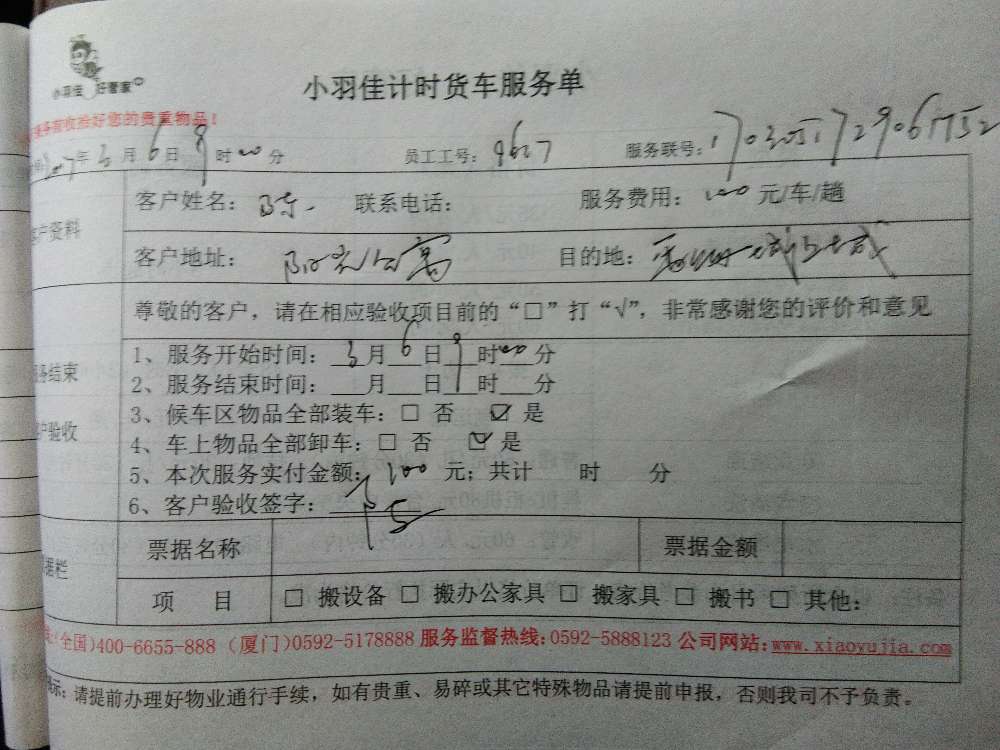 小羽佳 好管家
小羽佳计时货车服务单
务前收拾好您的贵重物品！
年3月6日9时00分 员工工号：9607 服务联号：
客户资料 客户姓名：陈 联系电话： 服务费用：100元/车/趟
客户地址：阳光公寓 目的地：
尊敬的客户，请在相应验收项目前的“□”打“√”，非常感谢您的评价和意见
服务结束
客户验收
1、服务开始时间：3月6日9时00分
2、服务结束时间：___月___日___时___分
3、候车区物品全部装车：□ 否 ☑ 是
4、车上物品全部卸车：□ 否 ☑ 是
5、本次服务实付金额：100 元；共计 时 分
6、客户验收签字：
据栏 票据名称 票据金额
项 目 □ 搬设备 □ 搬办公家具 □ 搬家具 □ 搬书 □ 其他：
(全国)400-6655-888 (厦门)0592-5178888 服务监督热线:0592-5888123 公司网站:www.xiaoyujia.com
示：请提前办理好物业通行手续，如有贵重、易碎或其它特殊物品请提前申报，否则我司不予负责。